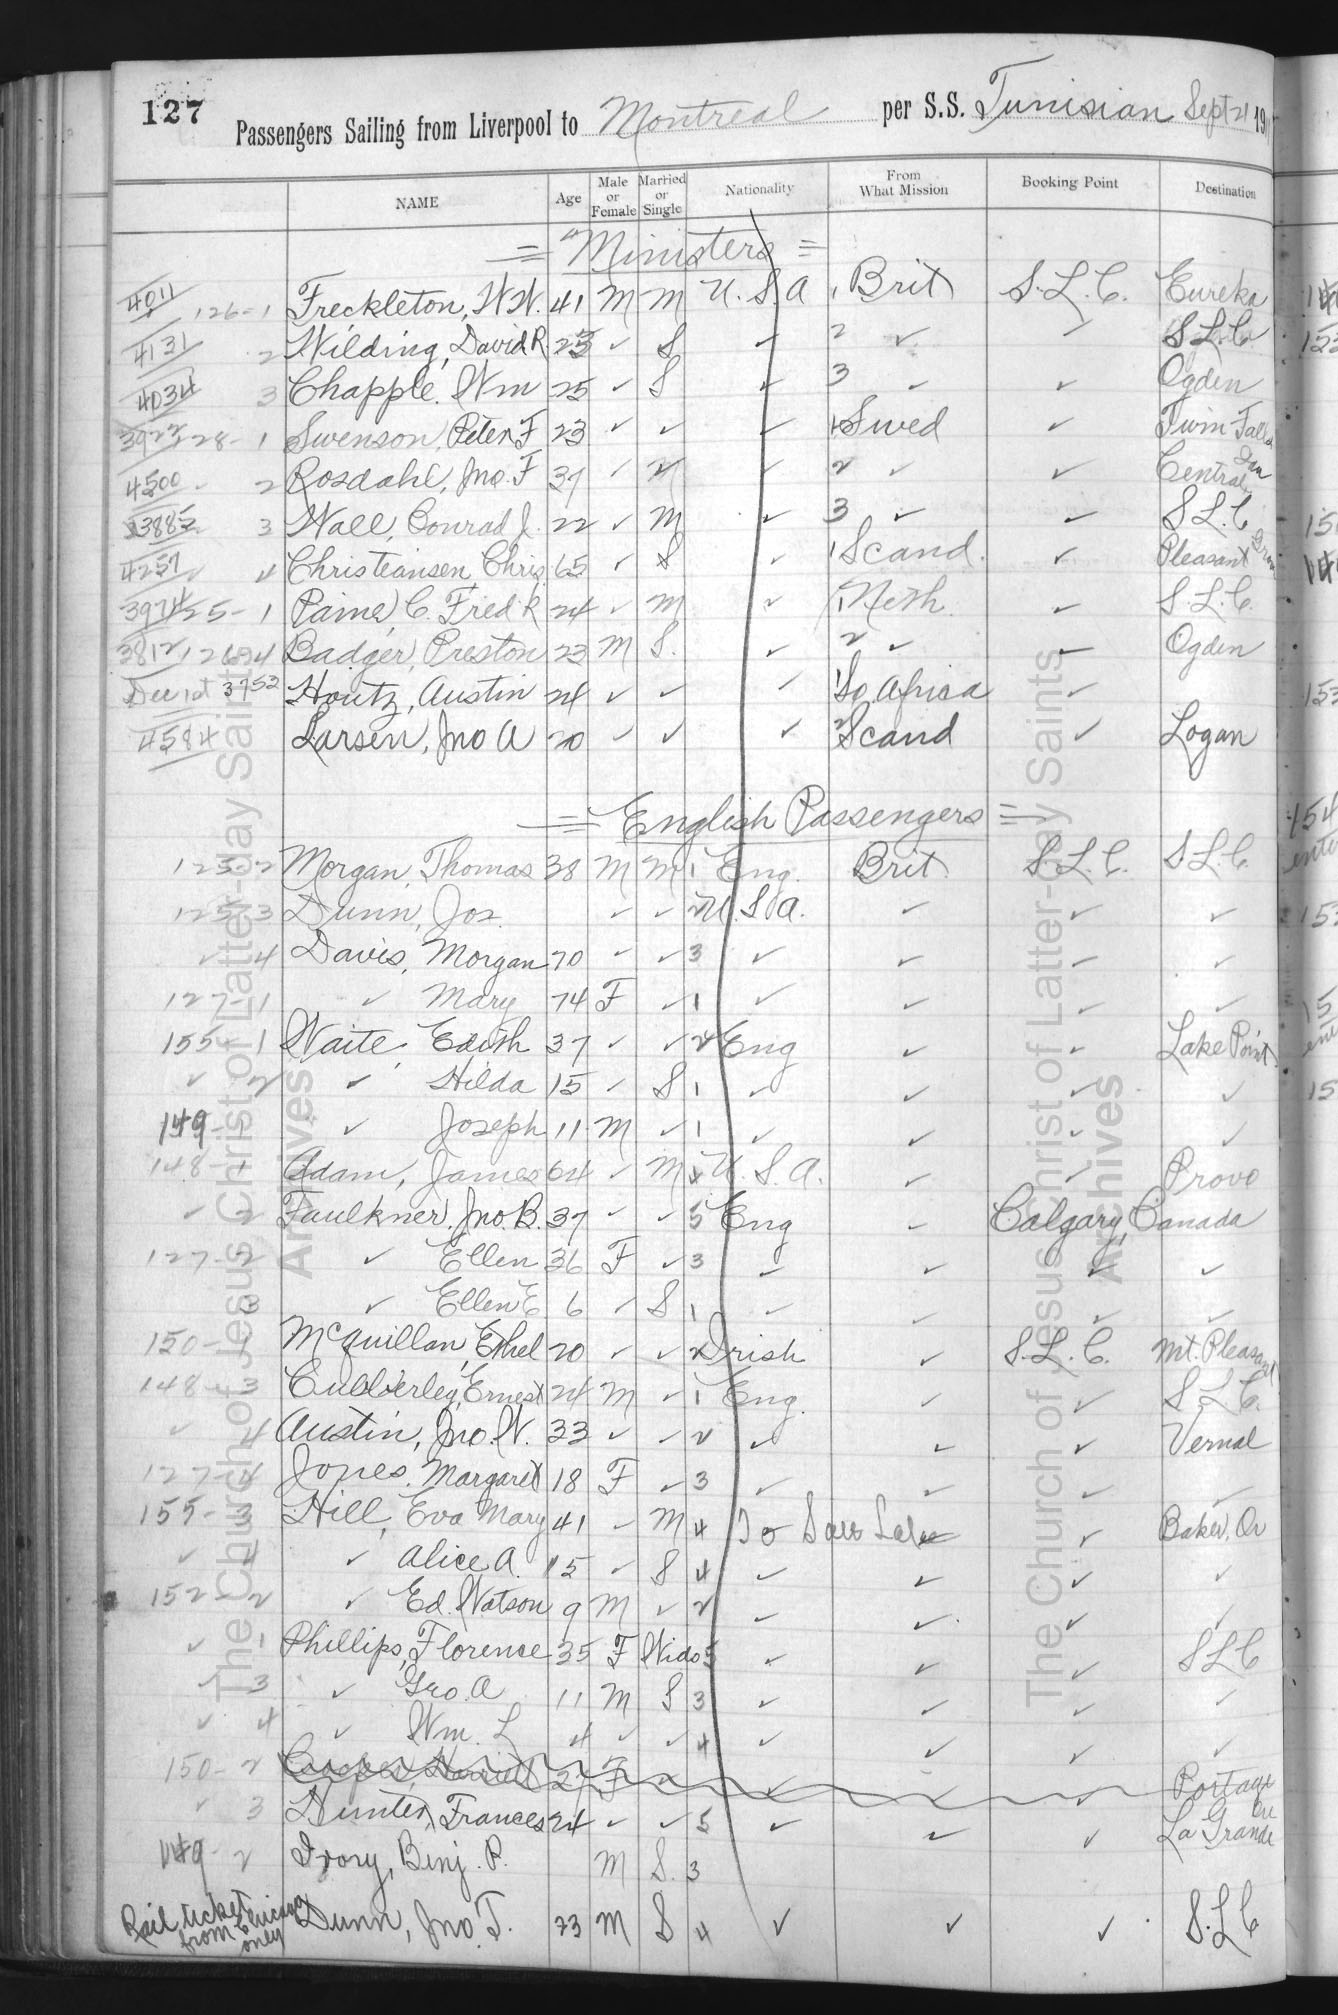 127
Passengers Sailing from Liverpool to Montreal per S.S. Tunisian Sept 21 19
NAME Age Male or Female Married or Single Nationality From What Mission Booking Point Destination
= "Ministers =
4011 126-1 Freckleton, W.W. 41 M M U.S.A 1 Brit S.L.C. Eureka
4131 2 Wilding, David R. 23 ✓ S ✓ 2 ✓ ✓ S L C
4034 3 Chapple, Wm 25 ✓ S ✓ 3 ✓ ✓ Ogden
3922 128-1 Swenson, Peter F 23 ✓ ✓ ✓ 1 Swed ✓ Twin Falls
4500 2 Rosdahl, Jno. F 37 ✓ ✓ 2 ✓ ✓ Central
3885 3 Wall, Conrad J. 22 ✓ M ✓ 3 ✓ ✓ S L C
4257 4 Christiansen, Chris 65 ✓ S ✓ 1 Scand. ✓ Pleasant Grove
3974 125-1 Paine, C. Fred'k 24 ✓ M ✓ 1 Neth. ✓ S.L.C.
3812 126-4 Badger, Preston 23 M S. ✓ 2 ✓ ✓ Ogden
Dec 1st 3752 Houtz, Austin 24 ✓ ✓ ✓ 1 So. Africa ✓
4584 Larsen, Jno A 20 ✓ ✓ ✓ 2 Scand ✓ Logan
= English Passengers =
125-2 Morgan, Thomas 38 M M 1 Eng. Brit S.L.C. S L C.
125-3 Dunn, Jos. ✓ ✓ 2 U.S.A. ✓ ✓ ✓
✓ 4 Davis, Morgan 70 ✓ ✓ 3 ✓ ✓ ✓ ✓
127-1 ✓ Mary 74 F ✓ 1 ✓ ✓ ✓ ✓
155-1 Waite, Edith 37 ✓ ✓ 4 Eng ✓ ✓ Lake Point
✓ 2 ✓ Hilda 15 ✓ S 1 ✓ ✓ ✓ ✓
149- ✓ Joseph 11 M ✓ 1 ✓ ✓ ✓ ✓
148-1 Adam, James 64 ✓ M 4 U.S.A. ✓ ✓ Provo
✓ 2 Faulkner, Jno. B. 37 ✓ ✓ 5 Eng ✓ Calgary, Canada
127-2 ✓ Ellen 36 F ✓ 3 ✓ ✓ ✓ ✓
3 ✓ Ellen E 6 ✓ S 1 ✓ ✓ ✓ ✓
150-1 McQuillan, Ethel 20 ✓ ✓ 2 Irish ✓ S.L.C. Mt. Pleasant
148-3 Cubberley, Ernest 24 M ✓ 1 Eng. ✓ ✓ S L C.
✓ 4 Austin, Jno. W. 33 ✓ ✓ 2 ✓ ✓ ✓ Vernal
127-4 Jones, Margaret 18 F ✓ 3 ✓ ✓ ✓ ✓
155-3 Hill, Eva Mary 41 ✓ M 4 To Salt Lake ✓ Baker, Or
✓ 4 ✓ Alice A. 15 ✓ S 4 ✓ ✓ ✓ ✓
152-2 ✓ Ed. Watson 9 M ✓ 2 ✓ ✓ ✓ ✓
✓ 1 Phillips, Florence 35 F Wido 5 ✓ ✓ ✓ S L C
✓ 3 ✓ Geo. A 11 M S 3 ✓ ✓ ✓ ✓
✓ 4 ✓ Wm. L 4 ✓ ✓ 4 ✓ ✓ ✓ ✓
150-2 Cooper, Harriett 27 F ✓ ✓ ✓ ✓ Portage
✓ 3 Hunter, Frances 24 ✓ ✓ 5 ✓ ✓ ✓ La Grande Ore
149-2 Ivory, Benj. P. M S. 3
Rail ticket from Chicago only Dunn, Jno. T. 23 M S 4 ✓ ✓ ✓ S.L C
The Church of Jesus Christ of Latter-day Saints
Archives
The Church of Jesus Christ of Latter-day Saints
Archives